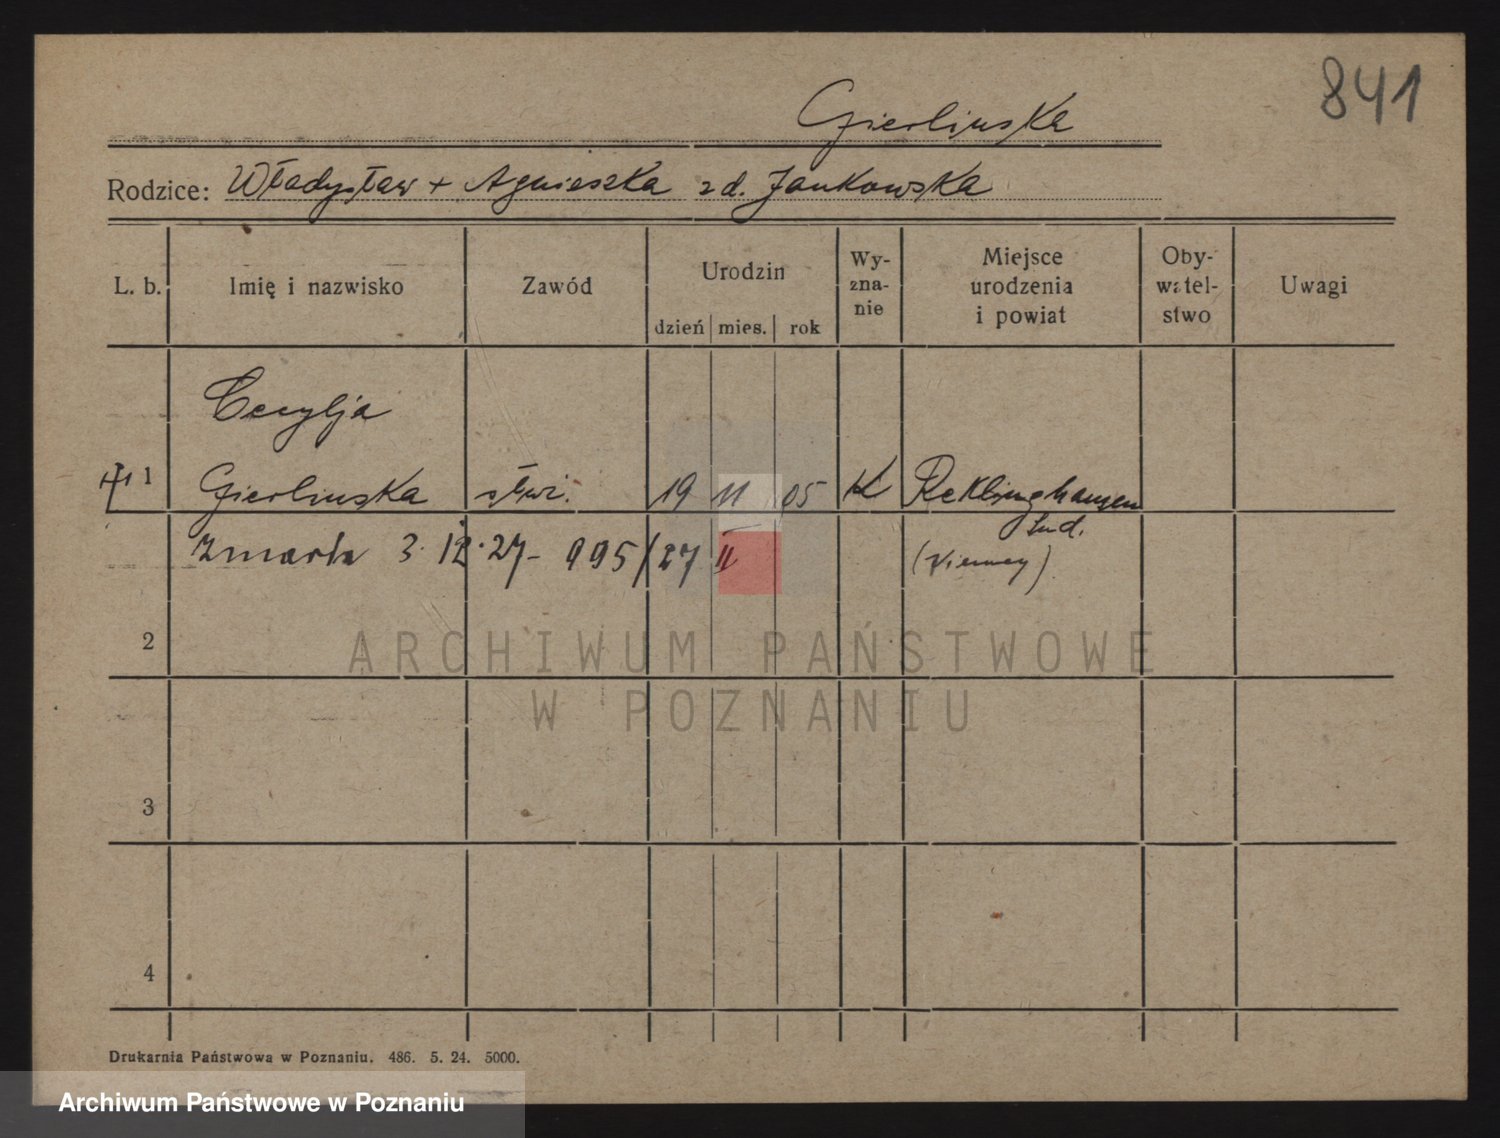 841
Gierlinska
Rodzice: Władysław + Agnieszka zd. Jankowska
L. b. Imię i nazwisko Zawód Urodzin dzień mies. rok Wy-zna-nie Miejsce urodzenia i powiat Oby-watel-stwo Uwagi
Cecylja
1 Gierlinska słwi. 19 11 05 K Reklinghausen
Sud.
zmarła 3. 12. 27 - 995/27 II (Niemcy)
2
ARCHIWUM PAŃSTWOWE
W POZNANIU
3
4
Drukarnia Państwowa w Poznaniu. 486. 5. 24. 5000.
Archiwum Państwowe w Poznaniu